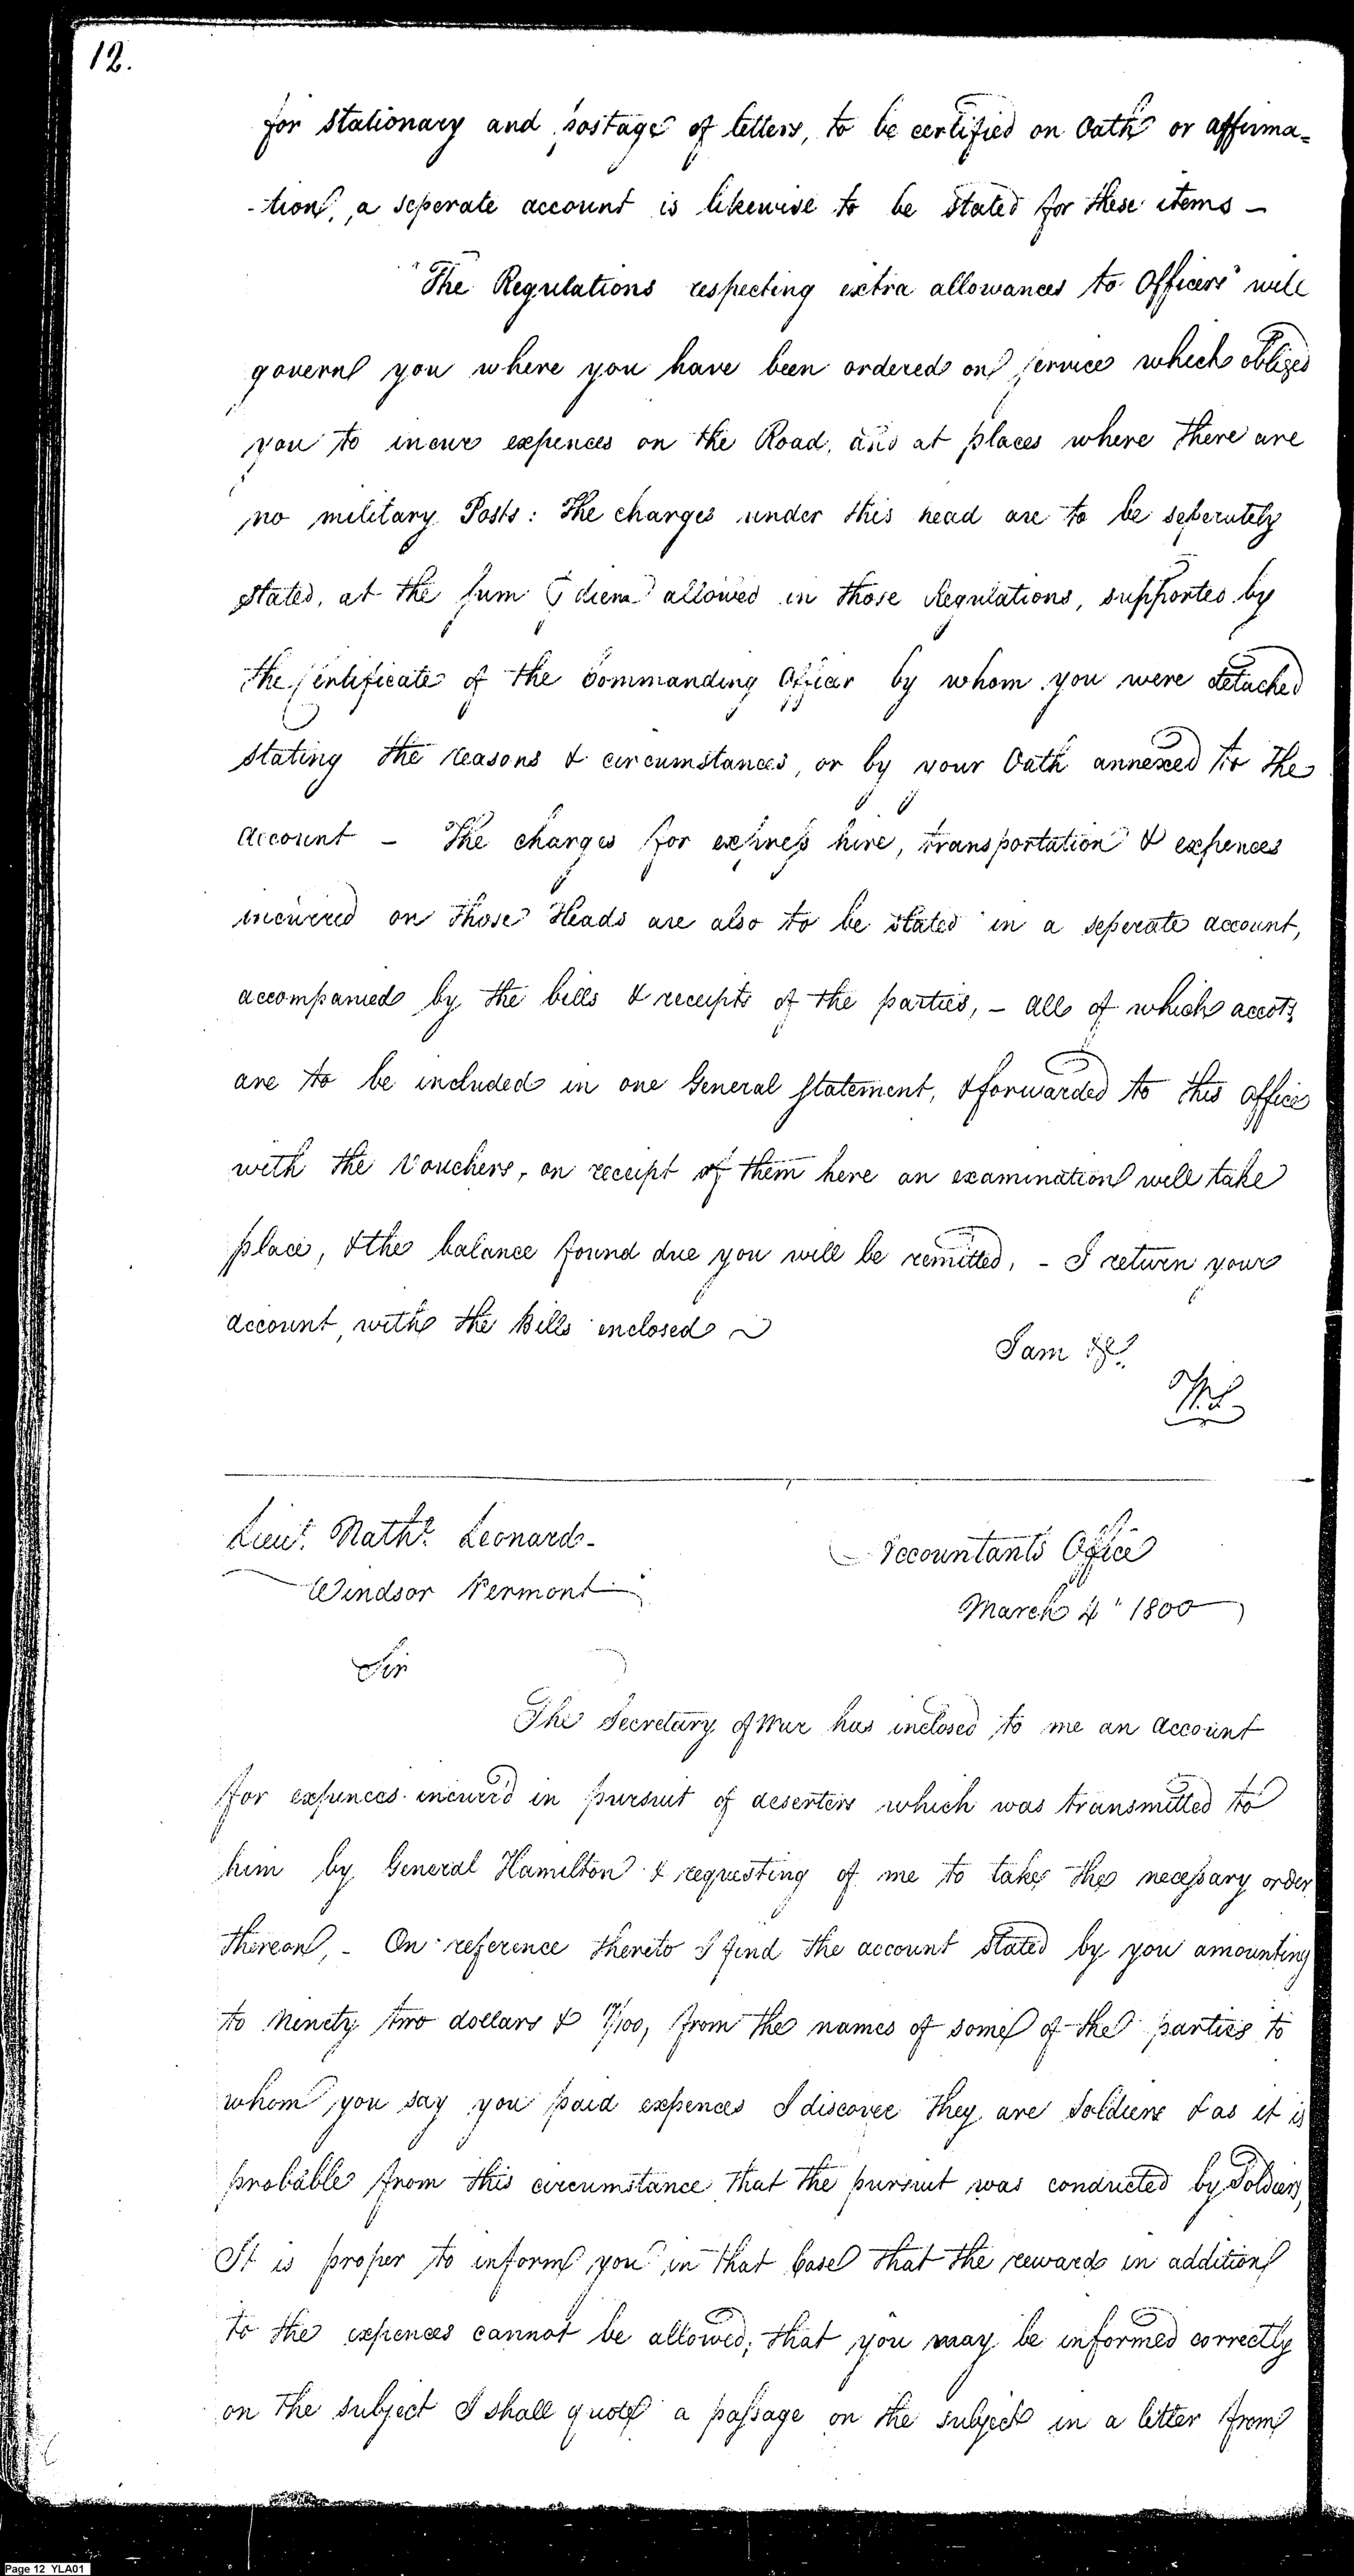 12.
for stationary and postage of letters, to be certified on Oath or affirma=
-tion, a seperate account is likewise to be stated for these items —
"The Regulations respecting extra allowances to Officers" will
govern you where you have been ordered on service which obliged
you to incur expences on the Road, and at places where there are
no military Posts: The charges under this head are to be seperately
stated, at the sum ⅌ diem allowed in those Regulations, supported by
the Certificate of the Commanding Officer by whom you were detached
stating the reasons & circumstances, or by your Oath annexed to the
account — The charges for express hire, transportation & expences
incurred on those Heads are also to be stated in a seperate account,
accompanied by the bills & receipts of the parties, — all of which accots.
are to be included in one General statement, & forwarded to this office
with the Vouchers, on receipt of them here an examination will take
place, & the balance found due you will be remitted, - I return your
account, with the Bills enclosed
I am &c.
W.S.
Lieut. Nathl. Leonard-
Windsor Vermont
Accountants Office
March 4" 1800
Sir
The Secretary of War has inclosed to me an account
for expences incurr'd in pursuit of deserters which was transmitted to
him by General Hamilton & requesting of me to take the necessary order
thereon, - On reference thereto I find the account stated by you amounting
to Ninety two dollars & /100, from the names of some of the parties to
whom you say you paid expences I discover they are Soldiers & as it is
probable from this circumstance that the pursuit was conducted by Soldiers,
It is proper to inform you in that Case that the reward in addition
to the expences cannot be allowed; that you may be informed correctly
on the subject I shall quote a passage on the subject in a letter from
Page 12 YLA01